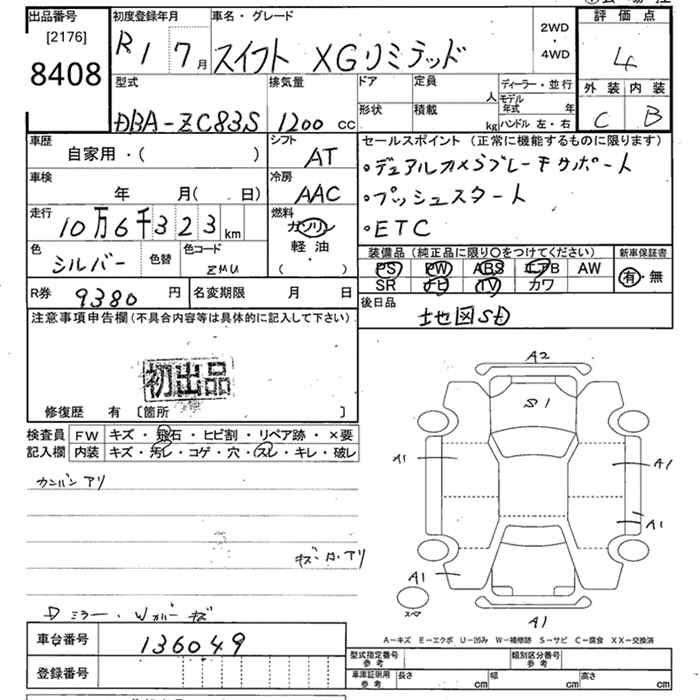 出品番号 初度登録年月 車名・グレード 2WD・4WD 評価点
[2176] R1 7月 スイフト XGリミテッド 4
8408 型式 排気量 ドア 定員 人 ディーラー・並行 外装 内装
DBA-ZC83S 1200 CC 形状 積載 kg モデル年式 年 C B
ハンドル 左・右
車歴 シフト セールスポイント (正常に機能するものに限ります)
自家用・( ) AT ・デュアルカメラブレーキサポート
車検 冷房 ・プッシュスタート
年 月( 日) AAC ・ETC
走行 燃料
10万6千323km ガソリン
軽油
( )
色 シルバー 色替 色コード ZMU
装備品 (純正品に限り○をつけてください) 新車保証書
PS PW ABS エアB AW 有・無
SR ナビ TV カワ
R券 9380円 名変期限 月 日 後日品
地図SD
注意事項申告欄(不具合内容等は具体的に記入して下さい)
初出品
修復歴 有 〔箇所 〕
検査員 FW キズ・飛石・ヒビ割・リペア跡・×要
記入欄 内装 キズ・汚レ・コゲ・穴・スレ・キレ・破レ
カンバン アリ
A2
S1
A1 A1
A1
A1
スペア
A1
Dミラー・Wカバー キズ
A-キズ E-エクボ U-凹み W-補修跡 S-サビ C-腐食 XX-交換済
車台番号 136049
型式指定番号 参考 類別区分番号 参考
登録番号 車庫証明用 参考 長さ cm 幅 cm 高さ cm